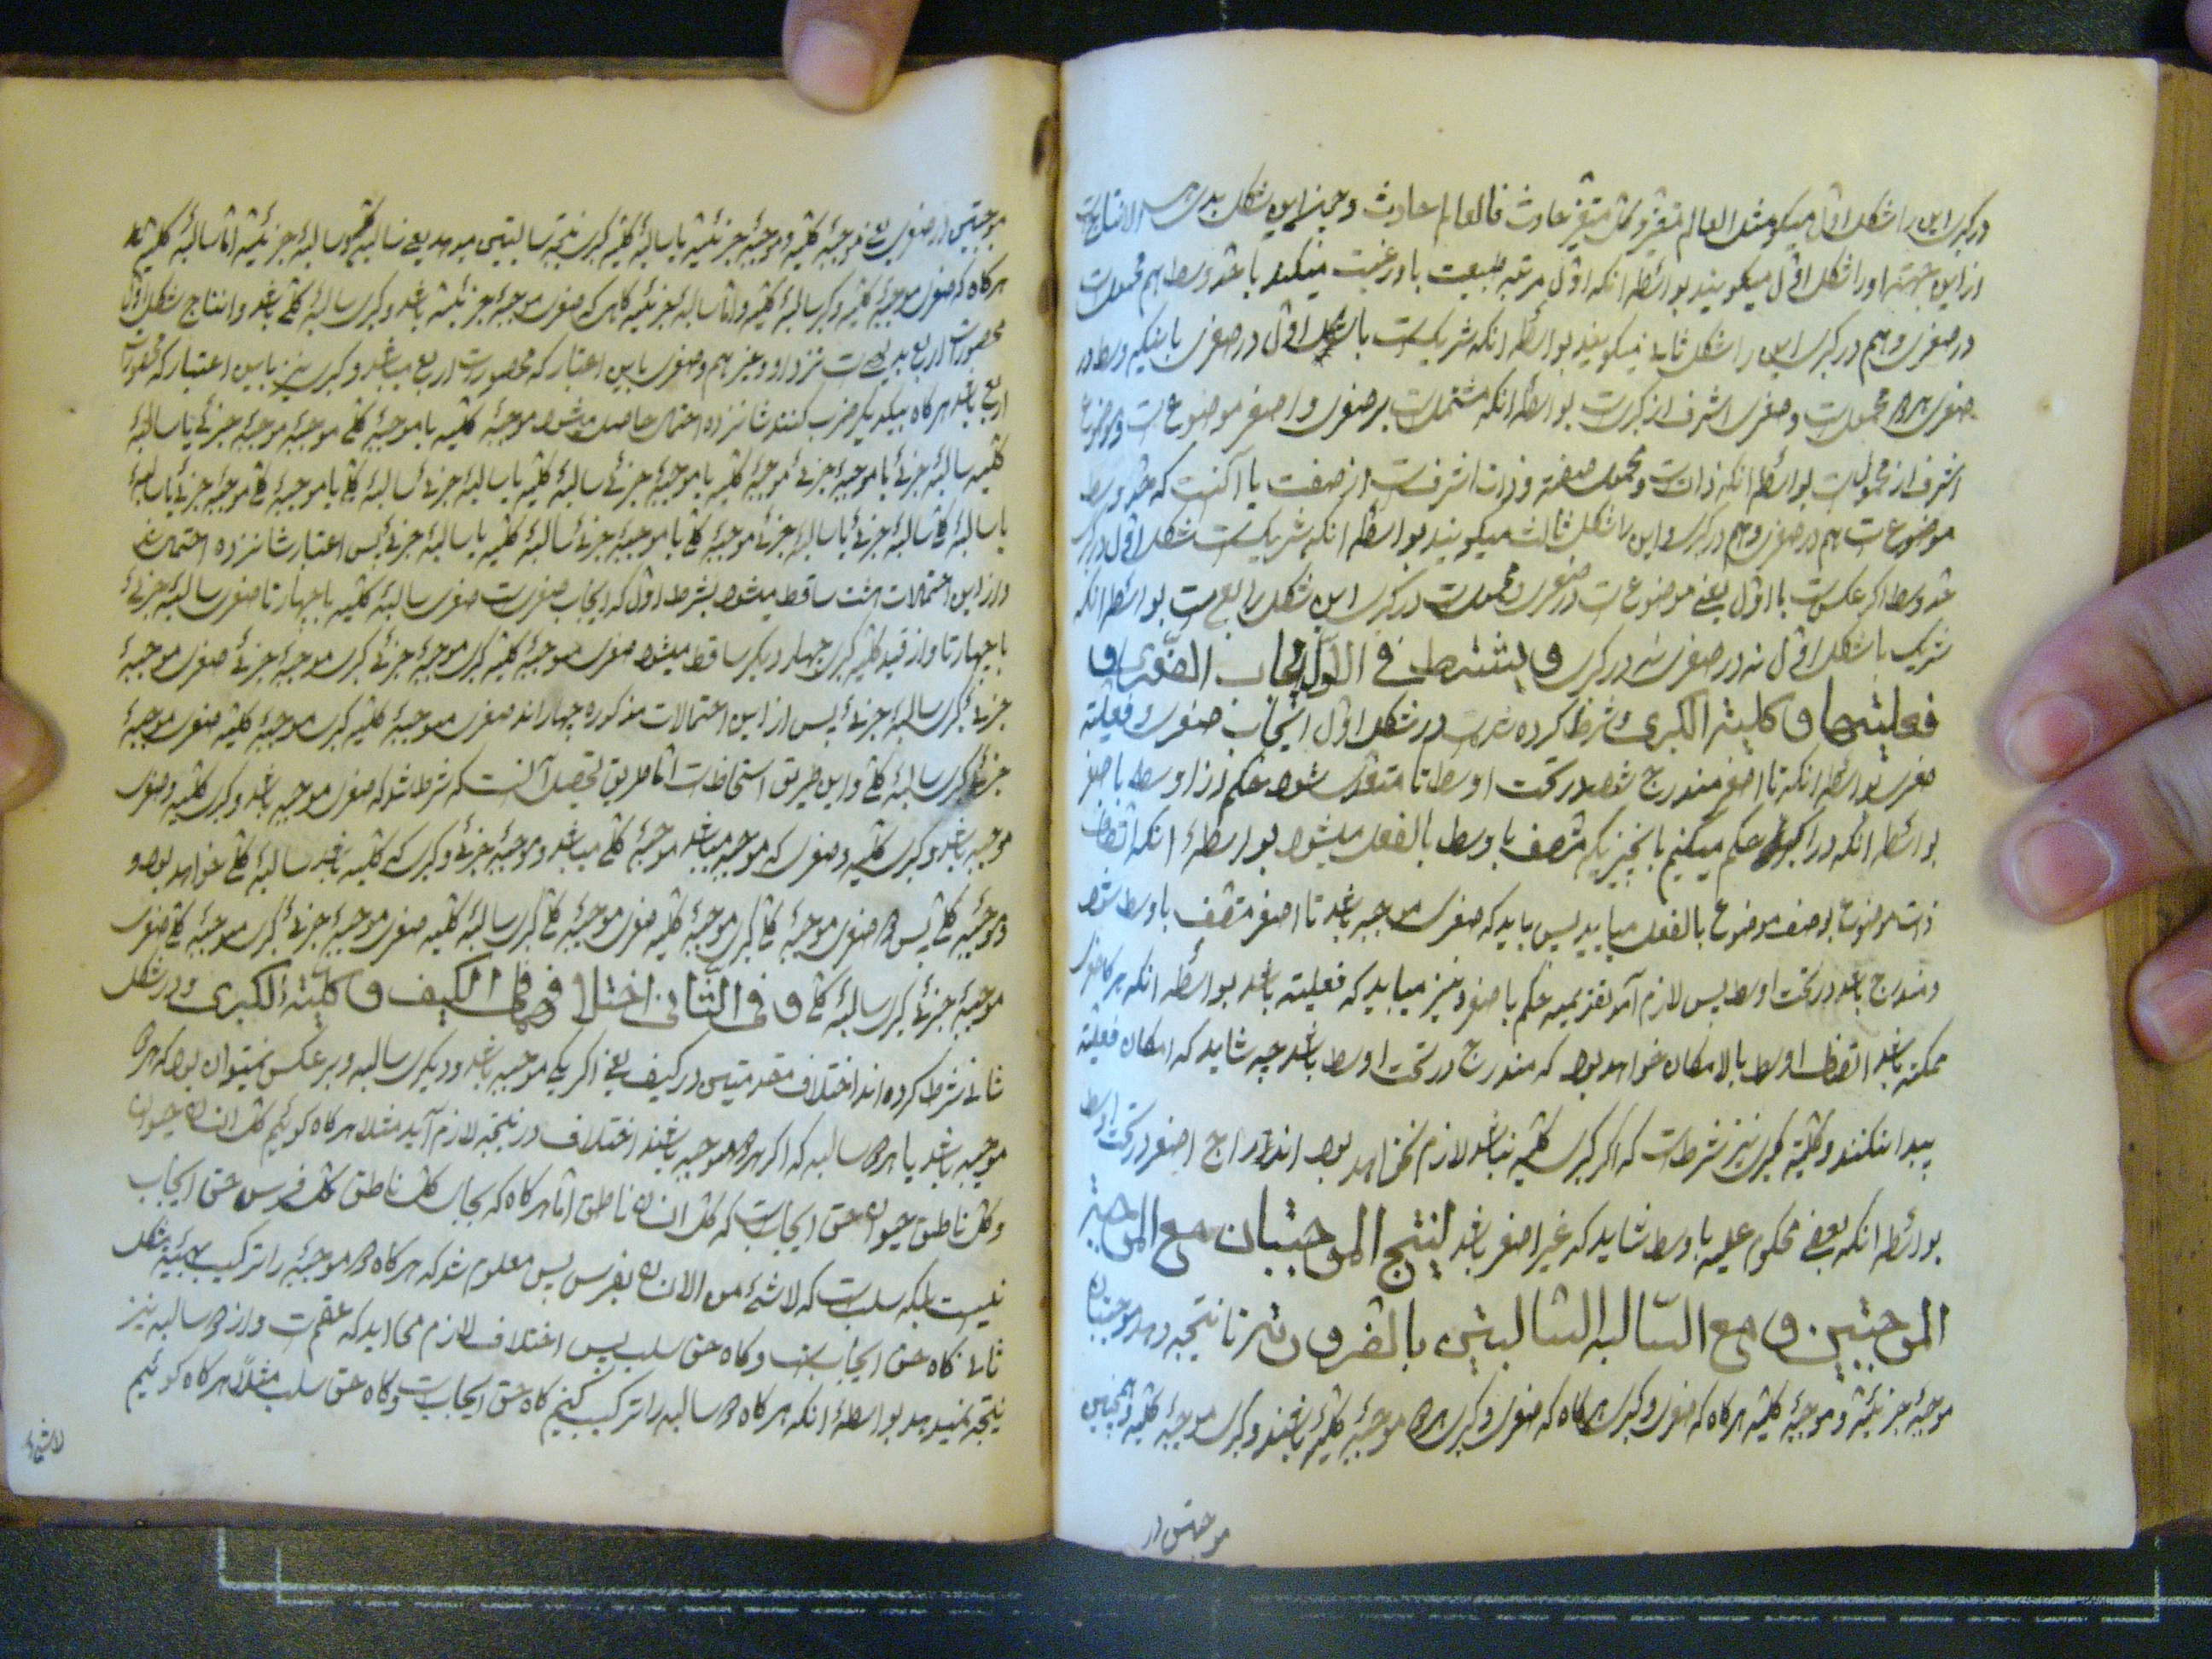 در کبری این را شکل اول میگویند مثل العالم متغیر و کل متغیر حادث فالعالم حادث و چون این شکل بدیهی الانتاج است
از این جهت او را شکل اول میگویند بواسطه انکه اول مرتبه طبیعت باو رغبت میکند یا حد وسط هم محمولست
در صغری و هم در کبری این را شکل ثانی میگویند بواسطه انکه شریکست با شکل اول در صغری باینکه وسط در
صغری هر دو محمولست و صغری اشرف از کبریست بواسطه انکه مشتملست بر صغری و اصغر موضوعست و موضوع
اشرف از محمولست بواسطه انکه ذاتست و محمول صفة و ذات اشرفست از صفت یا آنست که حد وسط
موضوعست هم در صغری و هم در کبری و این را شکل ثالث میگویند بواسطه انکه شریکست شکل اول در کبری
حد وسط اگر عکس است با اول یعنی موضوعست در صغری و محمولست در کبری این شکل رابع است بواسطه انکه
شریک با شکل اول نه در صغری نه در کبری و یشترط فی الاول ایجاب الصغری و
فعلیتها و کلیة الکبری شرط کرده شده در شکل اول ایجاب صغری و فعلیة
صغری بواسطه انکه تا اصغر مندرج شود در تحت اوسط تا متعدی شود حکم از اوسط باصغر
بواسطه انکه در اکبر حکم میکنیم بانچیزیکه متصف باوسط بالفعل میشود بواسطهٔ انکه اتصاف
ذات موضوع بوصف موضوع بالفعل میباید پس باید که صغری موجبه باشد تا اصغر متصف باوسط شود
و مندرج باشد در تحت اوسط پس لازم آمد تعدیه حکم باصغر و نیز میباید که فعلیته باشد بواسطه انکه هرگاه صغری
ممکنه باشد اتصاف اوسط بالامکان خواهد بود که مندرج در تحت اوسط باشد چه شاید که امکان فعلیة
پیدا نکند و کلیة کبری نیز شرط است که اگر کبری کلیه نباشد لازم نخواهد بود اندراج اصغر در تحت اوسط
بواسطه انکه بعضی محکوم علیه باوسط شاید که غیر اصغر باشد لینتج الموجبتان مع الموجبة
الموجبتین و مع السالبه السالبتین بالضرورة تا نتیجه دهد موجبتان
موجبهٔ جزئیه و موجبهٔ کلیه هرگاه که صغری و کبری هرگاه که صغری و کبری هر دو موجبهٔ کلیه باشند و کبری موجبهٔ کلیه و همچنین
موجبتین در
موجبتین در صغری یعنی موجبهٔ کلیه و موجبهٔ جزئیه با سالبهٔ کلیه کبری نتیجه سالبتین میدهد یعنی سالبه کلیه و سالبهٔ جزئیه اما سالبهٔ کلیه
هرگاه که صغری موجبهٔ کلیه و کبری سالبهٔ کلیه و اما سالبه جزئیه گاهی که صغری موجبهٔ جزئیه باشد و کبری سالبهٔ کلی باشد و انتاج شکل اول
محصورات اربع بدیهی است نزد او و غیر هم و صغری باین اعتبار که محصورات اربع میباشد و کبری نیز باین اعتبار که محصورات
اربع باشد هرگاه بیکدیگر ضرب کنند شانزده احتمال حاصل میشود موجبهٔ کلیه با موجبهٔ کلی موجبه موجبهٔ جزئی یا سالبهٔ
کلیه سالبهٔ جزئی با موجبهٔ جزئی موجبهٔ کلیه با موجبهٔ جزئی سالبهٔ کلیه با سالبهٔ جزئی سالبهٔ کلی با موجبهٔ کلی موجبهٔ جزئی با سالبهٔ
با سالبهٔ کلی سالبهٔ جزئی با سالبهٔ جزئی موجبهٔ کلی با موجبهٔ جزئی سالبهٔ کلیه با سالبهٔ جزئی پس اعتبار شانزده احتمال شد
و از این احتمالات هشت ساقط میشود بشرط اول که ایجاب صغریست صغری سالبهٔ کلیه با چهار تا صغری سالبهٔ جزئی
با چهار تا و از قید کلیه کبری چهار دیگر ساقط میشود صغری موجبهٔ کلیه کبری موجبهٔ جزئی کبری موجبهٔ جزئی صغری موجبهٔ
جزئی کبری سالبهٔ جزئی پس از این احتمالات مذکوره چهار اند صغری موجبهٔ کلیه کبری موجبهٔ کلیه صغری موجبهٔ
جزئی کبری سالبهٔ کلی و این طریق اسقاطست اما طریق تحصیل آنست که شرط شد که صغری موجبه باشد و کبری کلیه و صغری
موجبه باشد و کبری کلیه و صغری که موجبه میباشد موجبهٔ کلی میباشد و موجبهٔ جزئی و کبری که کلیه باشد سالبهٔ کلی خواهد بود و
موجبهٔ کلی پس دو صغری موجبهٔ کلی کبری موجبهٔ کلیه صغری موجبهٔ کلی کبری سالبهٔ کلیه صغری موجبهٔ جزئی کبری موجبهٔ کلی صغری
موجبهٔ جزئی کبری سالبهٔ کلی و فی الثانی اختلافهما فی الکیف و کلیة الکبری و در شکل
ثانی شرط کرده اند اختلاف مقدمتین در کیف یعنی اگر یکی موجبه باشد و دیگری سالبه و بر عکس نمیتوان بود که هر دو
موجبه باشد یا هر دو سالبه که اگر هر دو موجبه باشند اختلاف در نتیجه لازم آید مثلا هرگاه گوئیم کل انسان حیوان
و کل ناطق حیوان حق ایجابست که کل انسان ناطق اما هرگاه که بجای کل ناطق کل فرس حق ایجاب
نیست بلکه سلبست که لاشئ من الانسان بفرس پس معلوم شد که هرگاه دو موجبه را ترکیب بهیئة شکل
ثانی گاه حق ایجابست و گاه حق سلب پس اختلاف لازم میاید که عقمست و از دو سالبه نیز
نتیجه نمیدهد بواسطهٔ انکه هرگاه دو سالبه را ترکیب کنیم گاه حق ایجابست و گاه حق سلب مثلا هرگاه گوئیم
لاشئ